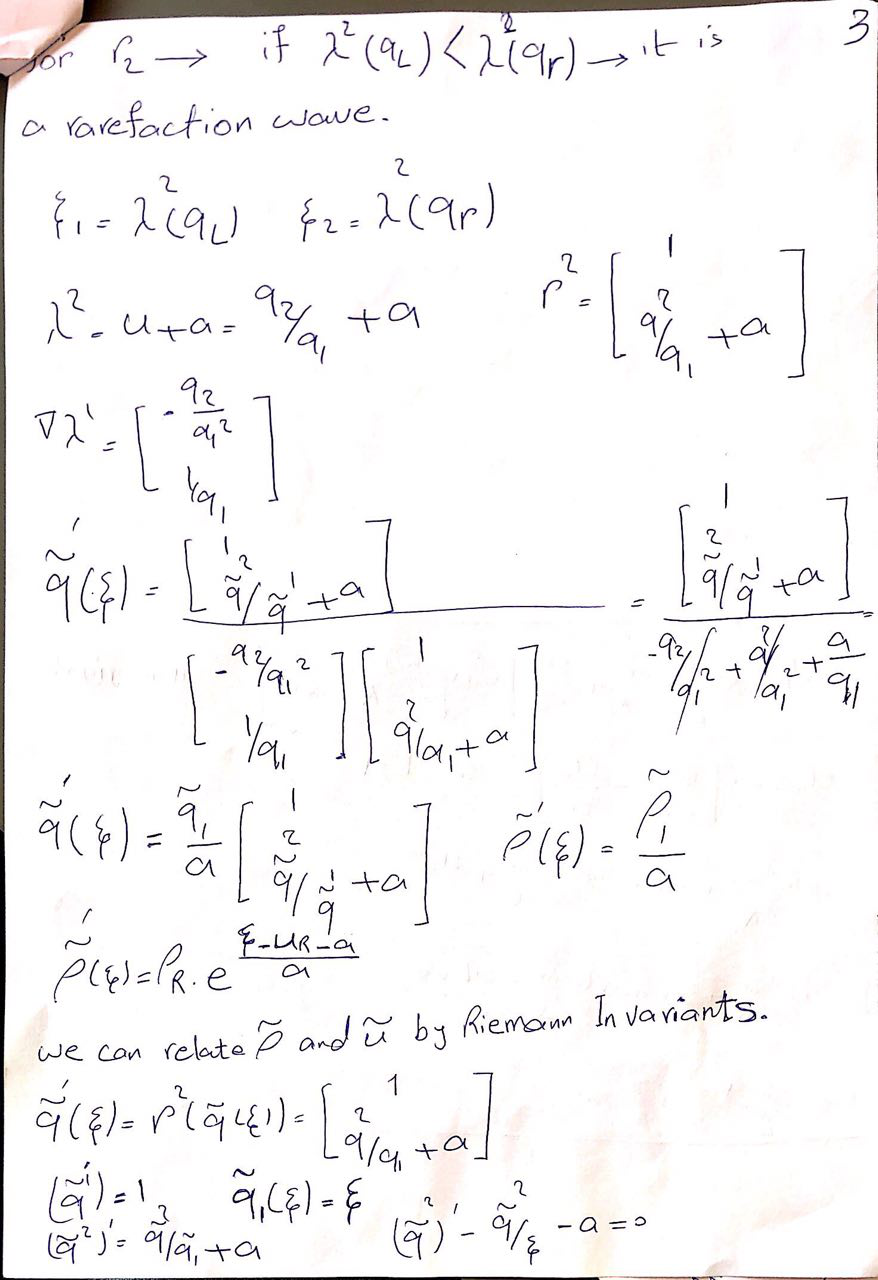 3
for r₂ → if λ²(q_L) < λ²(q_r) → it is
a rarefaction wave.
ξ₁ = λ²(q_L) ξ₂ = λ²(q_r)
λ² = u+a = q₂/q₁ + a r² = [1; q²/q₁ + a]
∇λ' = [-q₂/q₁²; 1/q₁]
q̃'(ξ) = [1; q̃²/q̃¹ + a] / ([-q₂/q₁²; 1/q₁][1; q²/q₁ + a]) = [1; q̃²/q̃¹ + a] / (-q₂/q₁² + q²/q₁² + a/q₁) =
q̃'(ξ) = q̃₁/a [1; q̃²/q̃¹ + a] ρ̃'(ξ) = ρ̃₁/a
ρ̃'(ξ) = ρ_R . e^((ξ-u_R-a)/a)
we can relate ρ̃ and ũ by Riemann Invariants.
q̃'(ξ) = r²(q̃(ξ)) = [1; q²/q₁ + a]
(q̃¹)' = 1 q̃₁(ξ) = ξ
(q̃²)' = q̃²/q̃₁ + a (q̃²)' - q̃²/ξ - a = 0